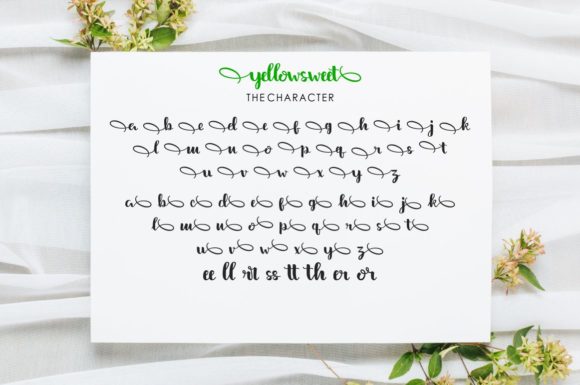 yellowsweet
THE CHARACTER
a b c d e f g h i j k
l m n o p q r s t
u v w x y z
a b c d e f g h i j k
l m n o p q r s t
u v w x y z
ee ll rr ss tt th er or